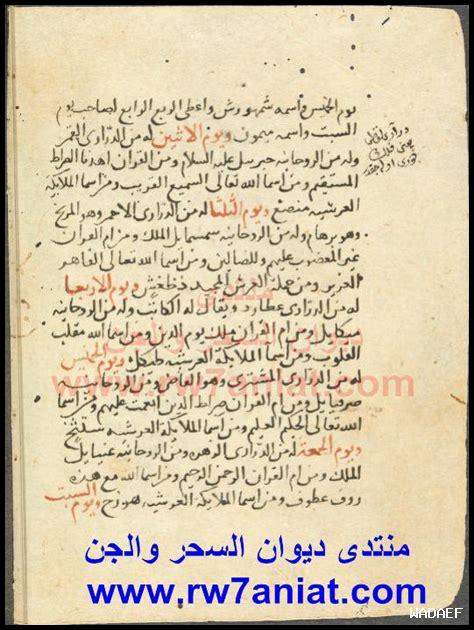 يوم الخميس واسمه شمهورش واعطى الربع الرابع لصاحب يوم
السبت واسمه ميمون ويوم الاثنين له من الدرارى القمر
وله من الروحانيه جبريل عليه السلام ومن القران اهدنا الصراط
المستقيم ومن اسما الله تعالى السميع القريب ومن اسما الملايكه
العرشيه ويوم الثلثا له من الدرارى الاحمر وهو المريخ
وهو بهرام وله من الروحانيه سمسمايل الملك ومن ام القران
غير المغضوب عليهم ولا الضالين ومن اسما الله تعالى القاهر
العزيز ومن حملة العرش ويوم الاربعا
له من الدرارى عطارد ويقال له الكاتب وله من الروحانيه
ميكايل ومن ام القران ملك يوم الدين ومن اسما الله مقلب
القلوب ومن اسما الملايكة العرشيه ويوم الخميس
له من الدرارى المشترى وهو القاضى ومن الروحانيه
صرفيايل ومن ام القران صراط الذين انعمت عليهم ومن اسما
الله تعالى الحكيم العليم ومن اسما الملايكة العرشيه
ويوم الجمعة له من الدرارى الزهره ومن الروحانيه عنيايل
الملك ومن ام القران الرحمن الرحيم ومن اسما الله مع هذه
روف عطوف ومن اسما الملايكة العرشيه ويوم السبت
منتدى
ديوان السحر والجن
www.rw7aniat.com
منتدى ديوان السحر والجن
www.rw7aniat.com
WADAEF